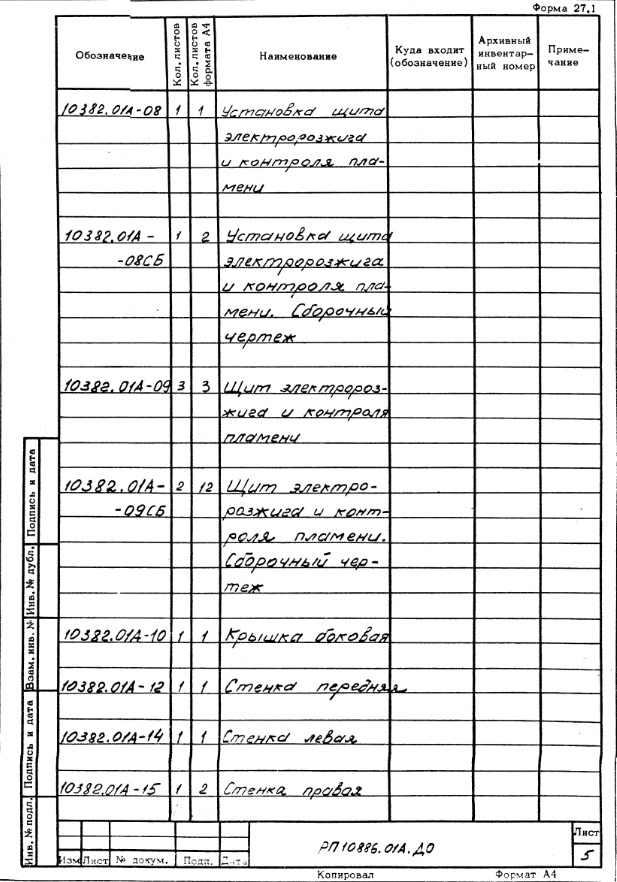 Форма 27.1
Обозначение
Кол. листов
Кол. листов
формата А4
Наименование
Куда входит
(обозначение)
Архивный
инвентар-
ный номер
Приме-
чание
10382.01А-08 1 1 Установка щита
электророзжига
и контроля пла-
мени
10382.01А- 1 2 Установка щита
-08СБ электророзжига
и контроля пла-
мени. Сборочный
чертеж
10382.01А-09 3 3 Щит электророз-
жига и контроля
пламени
10382.01А- 2 12 Щит электро-
-09СБ розжига и конт-
роля пламени.
Сборочный чер-
теж
10382.01А-10 1 1 Крышка боковая
10382.01А-12 1 1 Стенка передняя
10382.01А-14 1 1 Стенка левая
10382.01А-15 1 2 Стенка правая
Подпись и дата
Инв. № дубл.
Взам. инв. №
Подпись и дата
Инв. № подл.
Изм Лист № докум. Подп. Дата
РП10886.01А.ДО
Лист
5
Копировал Формат А4